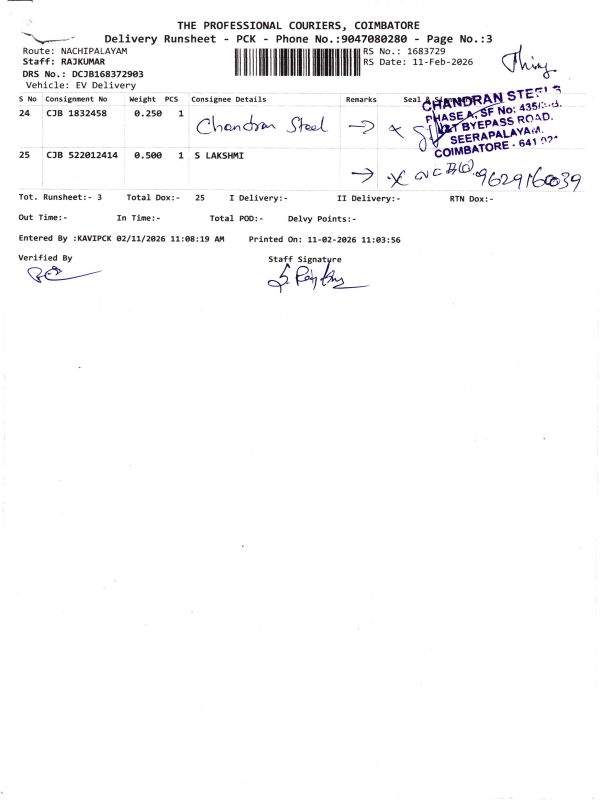 THE PROFESSIONAL COURIERS, COIMBATORE
Delivery Runsheet - PCK - Phone No.:9047080280 - Page No.:3
Route: NACHIPALAYAM
RS No.: 1683729
Staff: RAJKUMAR
RS Date: 11-Feb-2026
DRS No.: DCJB168372903
Vehicle: EV Delivery
S No Consignment No Weight PCS Consignee Details Remarks Seal &
24 CJB 1832458 0.250 1 Chandran Steel
CHANDRAN STEELS
PHASE A, SF No: 435/
L&T BYEPASS ROAD.
SEERAPALAYAM.
COIMBATORE - 641 021
25 CJB 522012414 0.500 1 S LAKSHMI
9629160039
Tot. Runsheet:- 3 Total Dox:- 25 I Delivery:- II Delivery:- RTN Dox:-
Out Time:- In Time:- Total POD:- Delvy Points:-
Entered By :KAVIPCK 02/11/2026 11:08:19 AM Printed On: 11-02-2026 11:03:56
Verified By Staff Signature